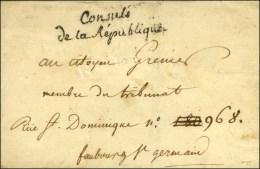 Consuls
de la République
au citoyen Grenier
membre du tribunat
Rue St. Dominique no. 968.
faubourg St germain